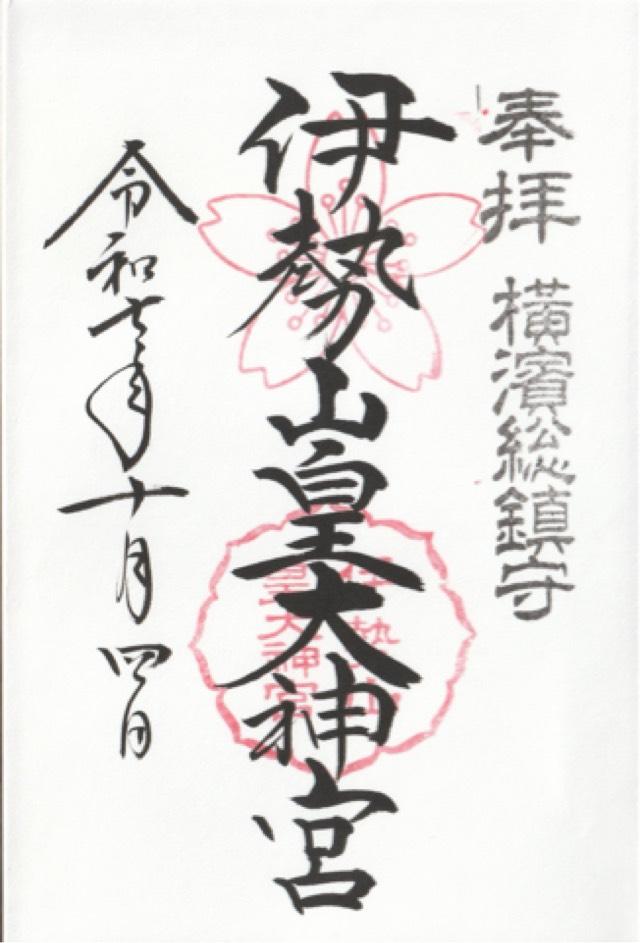 奉拝 横濱総鎮守
伊勢山皇大神宮
伊勢山
皇大神宮
令和七年十月四日